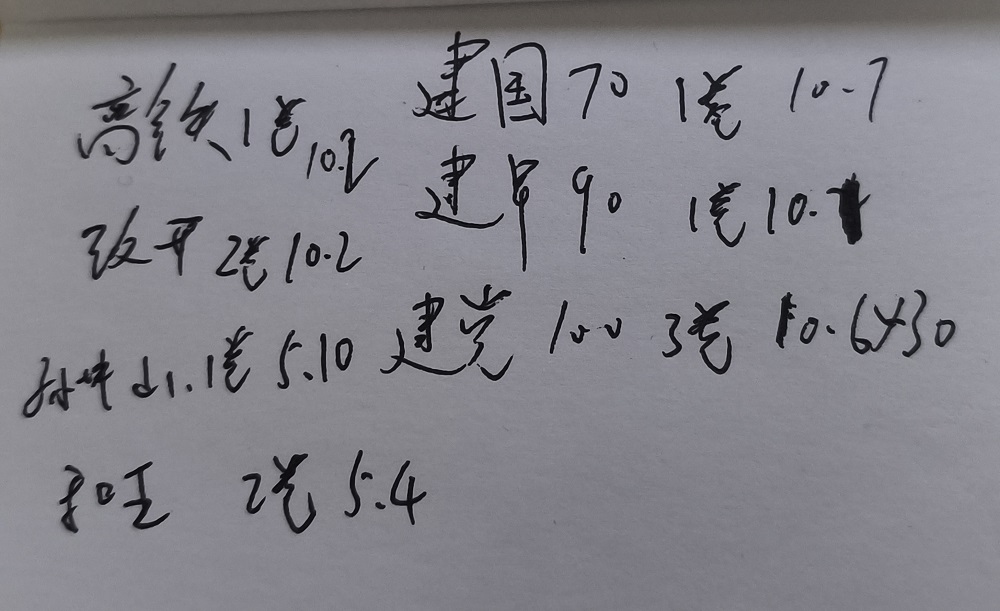 高铁 1卷 10.2
改开 2卷 10.2
孙中山 1卷 5.10
和王 2卷 5.4
建国 70 1卷 10.7
建军 90 1卷 10.
建党 100 3卷 10.6×30